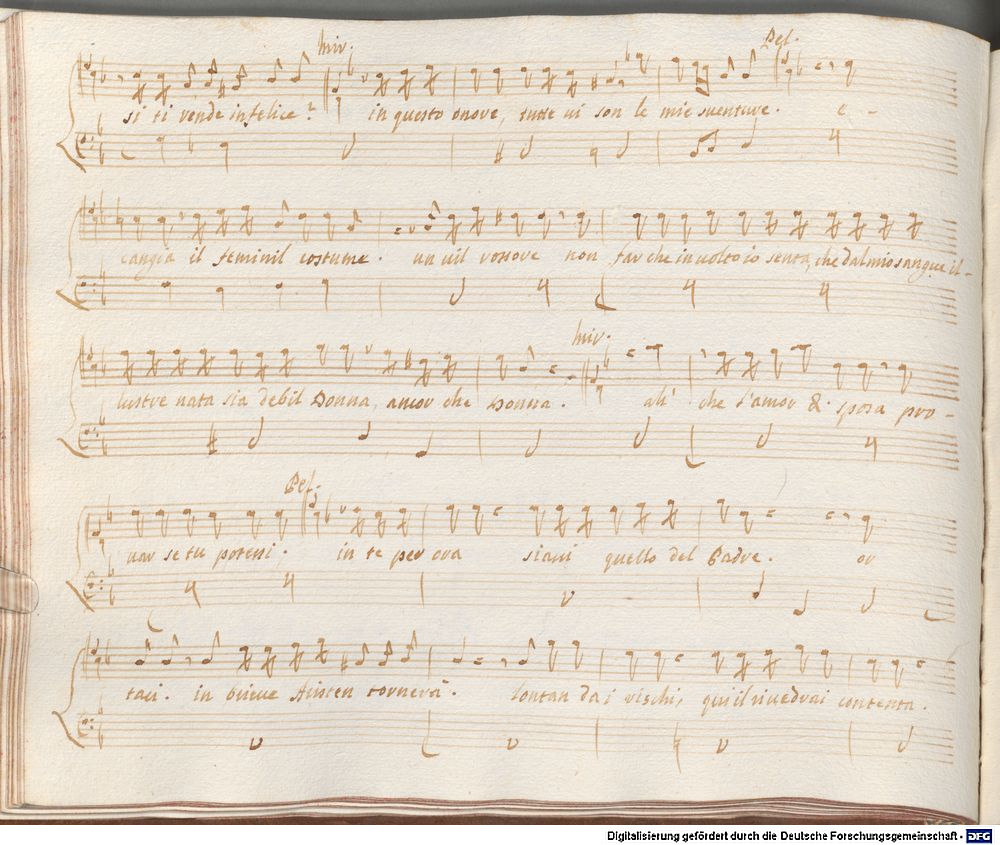 Mir. Pel.
si ti rende infelice? in questo onore, tutte ui son le mie suenture. e-
cangia il feminil costume. un uil rossore non far che in uolto io senta, che dal mio sangue il-
Mir.
lustre nata sia debil Donna, ancor che Donna. ah' che l'amor di sposa pro-
Pel.
uar se tu potessi. in te per ora siaui quello del Padre. or
taci. in breue tornerà. lontan da i rischi, qui il riuedrai contenta.
Digitalisierung gefördert durch die Deutsche Forschungsgemeinschaft - DFG